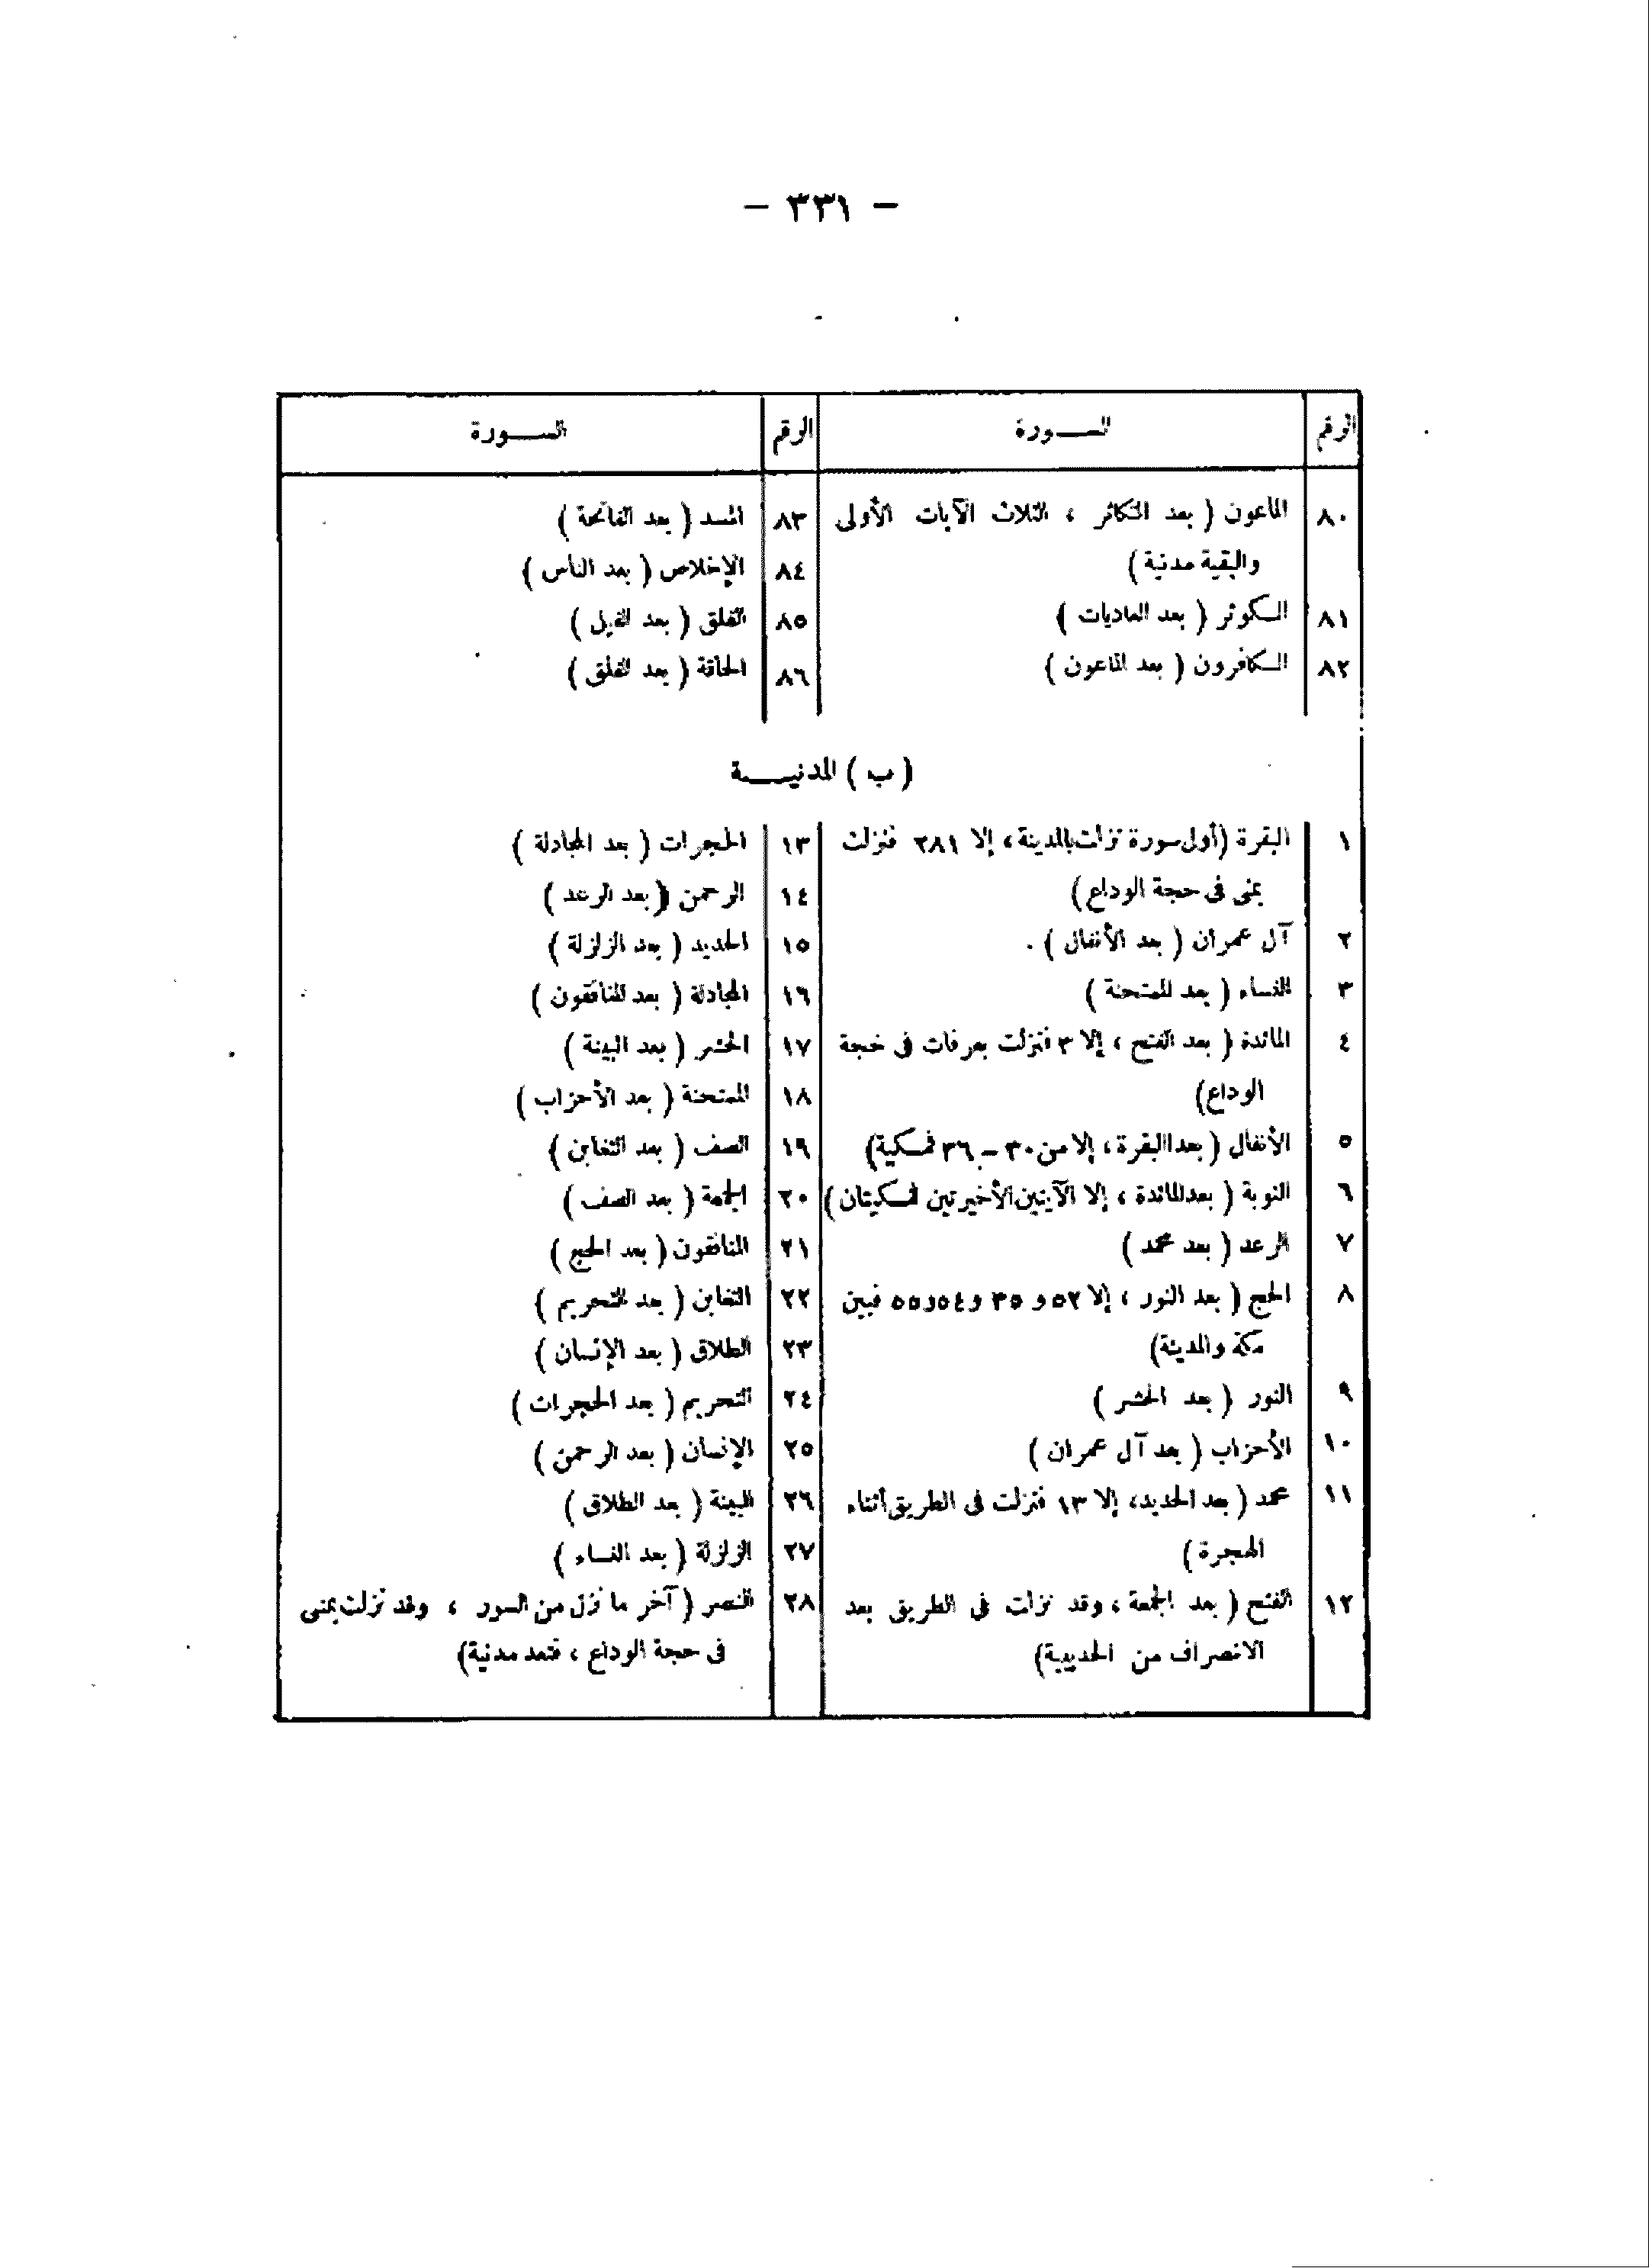 - ٣٣١ -
الرقم السـورة الرقم السـورة
٨٠ الماعون ( بعد التكاثر ، الثلاث الآيات الأولى
والبقية مدنية )
٨١ الكوثر ( بعد العاديات )
٨٢ الكافرون ( بعد الماعون )
٨٣ المسد ( بعد الفاتحة )
٨٤ الإخلاص ( بعد الناس )
٨٥ الفلق ( بعد الفيل )
٨٦ الحاقة ( بعد الفلق )
( ب ) المدنيـة
١ البقرة (أول سورة نزلت بالمدينة ، إلا ٢٨١ فنزلت
بمنى فى حجة الوداع)
٢ آل عمران ( بعد الأنفال ) .
٣ النساء ( بعد الممتحنة )
٤ المائدة ( بعد الفتح ، إلا ٣ فنزلت بعرفات فى حجة
الوداع)
٥ الأنفال ( بعد البقرة ، إلا من ٣٠ - ٣٦ فمكية)
٦ التوبة ( بعد المائدة ، إلا الآيتين الأخيرتين فمكيتان )
٧ الرعد ( بعد محمد )
٨ الحج ( بعد النور ، إلا ٥٢ و ٣٥ و٥٤و٥٥ فبين
مكة والمدينة)
٩ النور ( بعد الحشر )
١٠ الأحزاب ( بعد آل عمران )
١١ محمد ( بعد الحديد، إلا ١٣ فنزلت فى الطريق أثناء
الهجرة )
١٢ الفتح ( بعد الجمعة ، وقد نزلت فى الطريق بعد
الانصراف من الحديبية)
١٣ الحجرات ( بعد المجادلة )
١٤ الرحمن ( بعد الرعد )
١٥ الحديد ( بعد الزلزلة )
١٦ المجادلة ( بعد المنافقون )
١٧ الحشر ( بعد البينة )
١٨ الممتحنة ( بعد الأحزاب )
١٩ الصف ( بعد التغابن )
٢٠ الجمعة ( بعد الصف )
٢١ المنافقون ( بعد الحج )
٢٢ التغابن ( بعد التحريم )
٢٣ الطلاق ( بعد الإنسان )
٢٤ التحريم ( بعد الحجرات )
٢٥ الإنسان ( بعد الرحمن )
٢٦ البينة ( بعد الطلاق )
٢٧ الزلزلة ( بعد النساء )
٢٨ النصر ( آخر ما نزل من السور ، وقد نزلت بمنى
فى حجة الوداع ، فتعد مدنية)